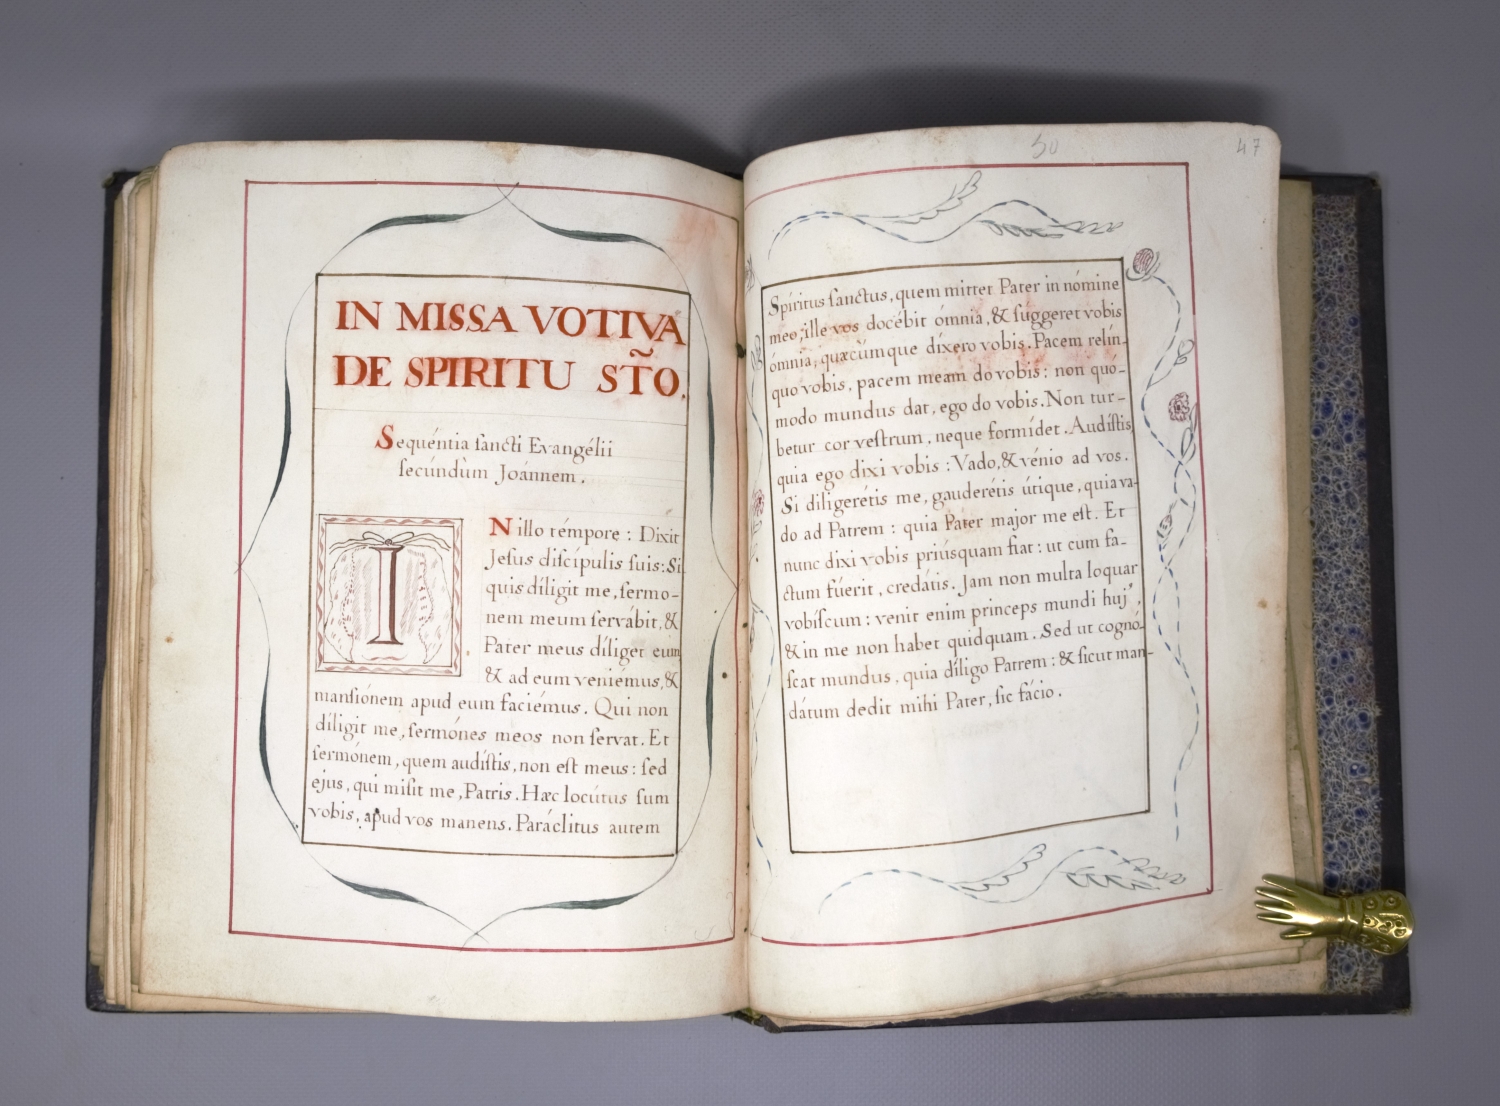 IN MISSA VOTIVA
DE SPIRITU STÕ.
Sequéntia ſancti Evangélii
ſecúndùm Joánnem.
IN illo témpore : Dixit
Jeſus diſcípulis ſuis : Si
quis díligit me, ſermo-
nem meum ſervábit, &
Pater meus díliget eum
& ad eum veniémus, &
manſiónem apud eum faciémus. Qui non
díligit me, ſermónes meos non ſervat. Et
ſermónem, quem audíſtis, non eſt meus : ſed
ejus, qui miſit me, Patris. Hæc locútus ſum
vobis, apud vos manens. Paráclitus autem
50
47
Spíritus ſanctus, quem mittet Pater in nómine
meo, ille vos docébit ómnia, & ſúggeret vobis
ómnia, quæcúmque díxero vobis. Pacem relín-
quo vobis, pacem meam do vobis : non quó-
modo mundus dat, ego do vobis. Non tur-
betur cor veſtrum, neque formídet. Audíſtis,
quia ego dixi vobis : Vado, & vénio ad vos.
Si diligerétis me, gauderétis útique, quia va-
do ad Patrem : quia Pater major me eſt. Et
nunc dixi vobis priúsquam fiat : ut cum fa-
ctum fúerit, credátis. Jam non multa loquar
vobíſcum : venit enim princeps mundi huj',
& in me non habet quidquam. Sed ut cognó-
ſcat mundus, quia díligo Patrem : & ſicut man-
dátum dedit mihi Pater, ſic fácio.